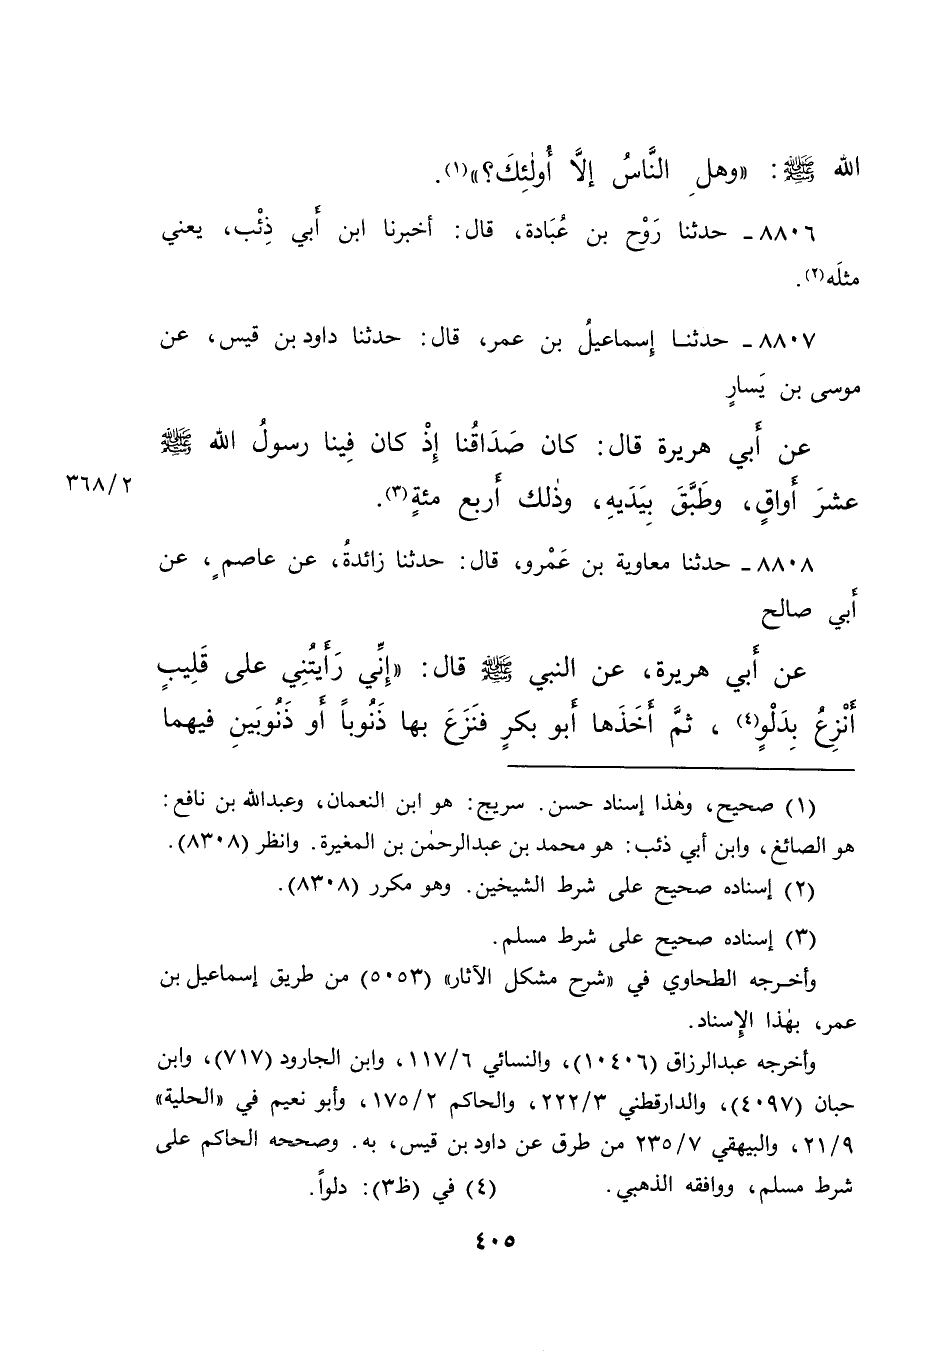 الله ﷺ: «وهلِ النَّاسُ إلاَّ أُولٰئِكَ؟»(١).
٨٨٠٦ ـ حدثنا رَوْح بن عُبَادة، قال: أخبرنا ابن أَبي ذِئْب، يعني
مثلَه(٢).
٨٨٠٧ ـ حدثنـا إِسماعيلُ بن عمر، قال: حدثنا داود بن قيس، عن
موسى بن يَسارٍ
عن أَبي هريرة قال: كان صَدَاقُنا إِذْ كان فِينا رسولُ الله ﷺ
عشرَ أَواقٍ، وطَبَّقَ بِيَدَيهِ، وذٰلك أَربع مئةٍ(٣).
٣٦٨/٢
٨٨٠٨ ـ حدثنا معاوية بن عَمْرو، قال: حدثنا زائدةُ، عن عاصمٍ، عن
أَبي صالح
عن أَبي هريرة، عن النبي ﷺ قال: «إِنِّي رَأَيتُنِي على قَلِيبٍ
أَنْزِعُ بِدَلْوٍ(٤) ، ثمَّ أَخَذَها أَبو بكرٍ فنَزَعَ بها ذَنُوباً أَو ذَنُوبَينِ فيهما
(١) صحيح، وهٰذا إسناد حسن. سريج: هو ابن النعمان، وعبدالله بن نافع:
هو الصائغ، وابن أبي ذئب: هو محمد بن عبدالرحمٰن بن المغيرة. وانظر (٨٣٠٨).
(٢) إسناده صحيح على شرط الشيخين. وهو مكرر (٨٣٠٨).
(٣) إسناده صحيح على شرط مسلم.
وأخـرجه الطحاوي في «شرح مشكل الآثار» (٥٠٥٣) من طريق إسماعيل بن
عمر، بهٰذا الإِسناد.
وأخرجه عبدالرزاق (١٠٤٠٦)، والنسائي ١١٧/٦، وابن الجارود (٧١٧)، وابن
حبان (٤٠٩٧)، والدارقطني ٢٢٢/٣، والحاكم ١٧٥/٢، وأبو نعيم في «الحلية»
٢١/٩، والبيهقي ٢٣٥/٧ من طرق عن داود بن قيس، به. وصححه الحاكم على
شرط مسلم، ووافقه الذهبي. (٤) في (ظ٣): دلواً.
٤٠٥